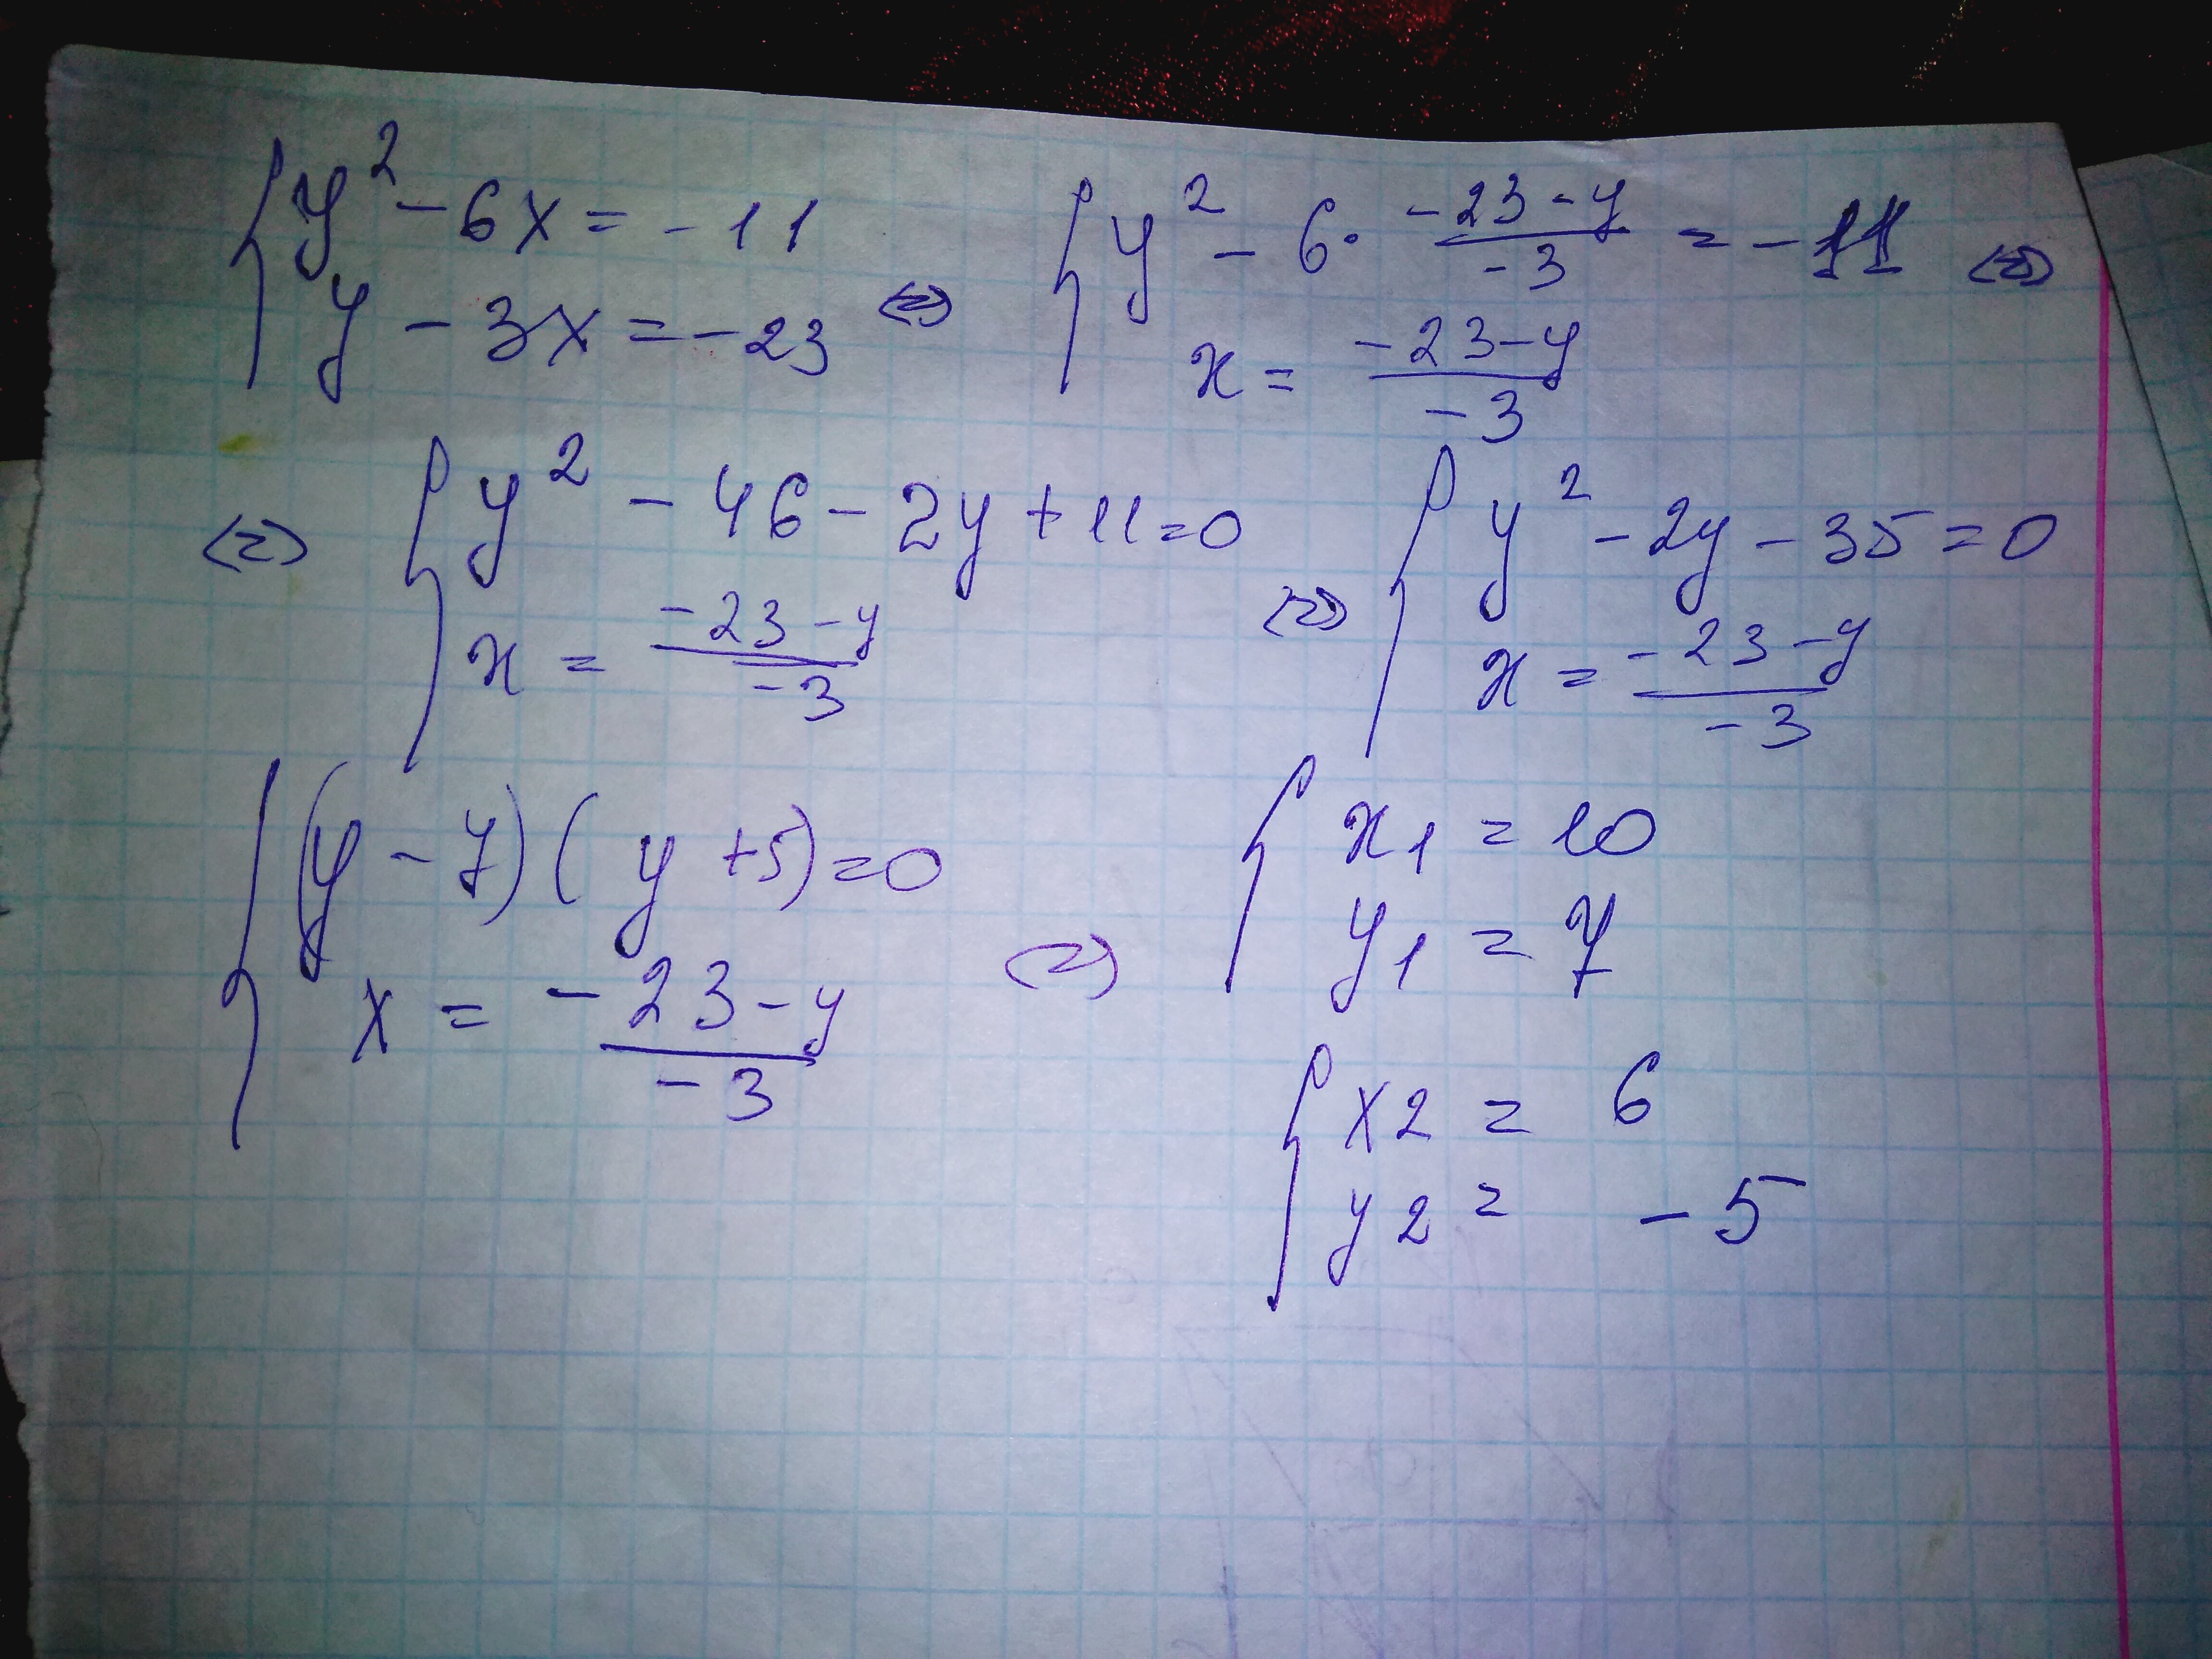 { y² - 6x = -11
y - 3x = -23 <=> { y² - 6 · (-23-y)/(-3) = -11 <=>
x = (-23-y)/(-3)
<=> { y² - 46 - 2y + 11 = 0
x = (-23-y)/(-3) <=> { y² - 2y - 35 = 0
x = (-23-y)/(-3)
{ (y - 7)(y + 5) = 0
x = (-23-y)/(-3) <=> { x1 = 10
y1 = 7
{ x2 = 6
y2 = -5